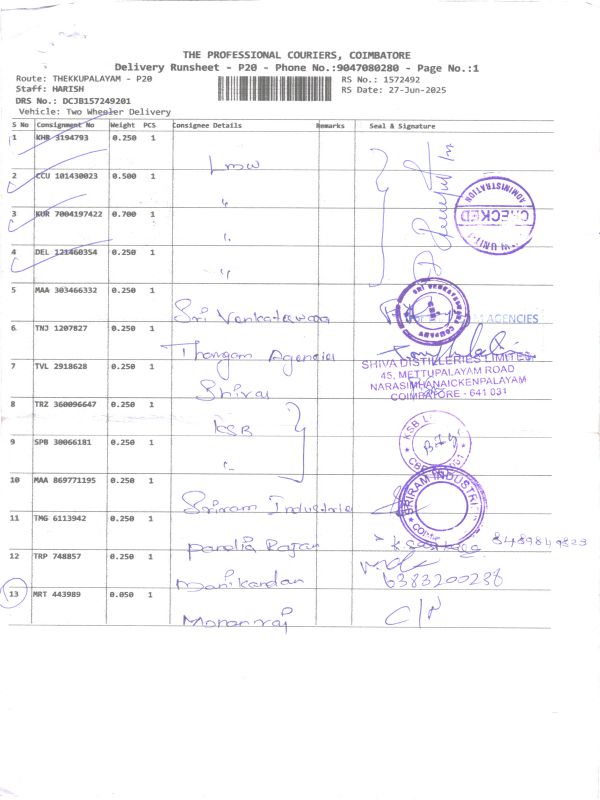 THE PROFESSIONAL COURIERS, COIMBATORE
Delivery Runsheet - P20 - Phone No.:9047080280 - Page No.:1
Route: THEKKUPALAYAM - P20
RS No.: 1572492
Staff: HARISH
RS Date: 27-Jun-2025
DRS No.: DCJB157249201
Vehicle: Two Wheeler Delivery
S No Consignment No Weight PCS Consignee Details Remarks Seal & Signature
1 KHR 3194793 0.250 1
Lmw
2 CCU 101430023 0.500 1
"
CHECKED
ADMINISTRATION
3 KUR 7004197422 0.700 1
"
4 DEL 121460354 0.250 1
"
5 MAA 303466332 0.250 1
Sri Venkateswara
SRI VENKATESWARA
COMPANY
AGENCIES
6 TNJ 1207827 0.250 1
Thangam Agencies
7 TVL 2918628 0.250 1
Shiva
SHIVA DISTILLERIES LIMITED
45, METTUPALAYAM ROAD
NARASIMHANAICKENPALAYAM
COIMBATORE - 641 031
8 TRZ 360096647 0.250 1
KSB
KSB L
9 SPB 30066181 0.250 1
"
10 MAA 869771195 0.250 1
Sriram Industrie
SRIRAM INDUSTRI
11 TMG 6113942 0.250 1
Pandia Rajan
12 TRP 748857 0.250 1
Manikandan
6383200238
13 MRT 443989 0.050 1
Mohanraj
C/N